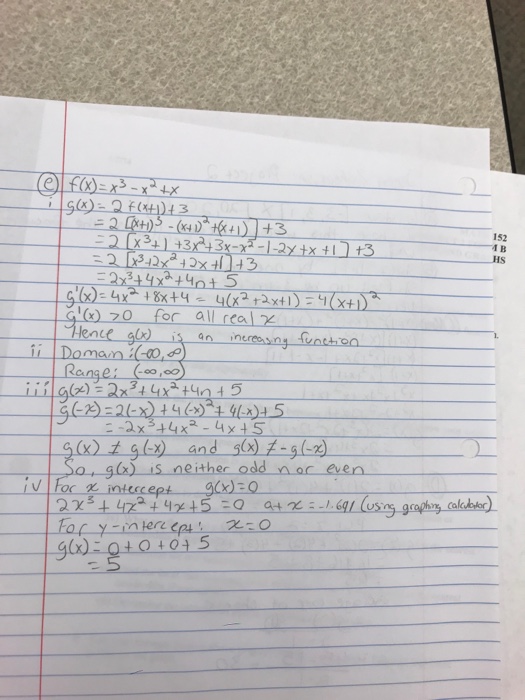 152
4 B
HS
e f(x)=x³-x²+x
i g(x)= 2 f(x+1)+3
= 2 [(x+1)³ -(x+1)² +(x+1)] +3
= 2 [x³+1 +3x²+3x-x²-1-2x+x+1] +3
= 2 [x³+2x²+2x+1]+3
= 2x³+4x²+4n+5
g'(x)= 4x² +8x+4 = 4(x²+2x+1) = 4(x+1)²
g'(x) >0 for all real x
Hence g(x) is an increasing function
ii Domain: (-∞,∞)
Range: (-∞,∞)
iii g(x)=2x³+4x²+4n+5
g(-x)=2(-x)+4(-x)²+4(-x)+5
= -2x³+4x²-4x+5
g(x) ≠ g(-x) and g(x) ≠ -g(-x)
So, g(x) is neither odd nor even
iv For x intercept g(x)=0
2x³+4x²+4x+5=0 at x=-1.691 (using graphing calculator)
For y-intercept: x=0
g(x)= 0+0+0+5
= 5